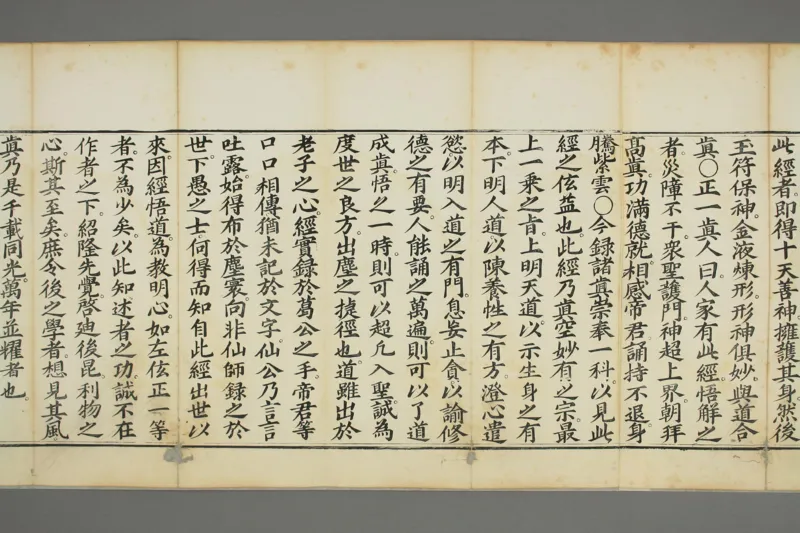 此經者。即得十天善神擁護其身。然後
玉符保神。金液煉形。形神俱妙。與道合
眞○正一眞人曰。人家有此經。悟解之
者。災障不干。衆聖護門。神超上界。朝拜
高眞。功滿德就。相感帝君。誦持不退。身
騰紫雲○今錄諸眞崇奉一科。以見此
經之佐益也。此經乃眞空妙有之宗。最
上一乘之旨。上明天道。以示生身之有
本。下明人道。以陳養性之有方。澄心遣
慾。以明入道之有門。息妄止貪。以諭修
德之有要。人能誦之萬遍。則可以了道
成眞。悟之一時。則可以超凡入聖。誠為
度世之良方。出塵之捷徑也。道雖出於
老子之心。經實錄於葛公之手。帝君等
口口相傳。猶未記於文字。仙公乃言言
吐露。始得布於塵寰。向非仙師錄之於
世。下愚之士。何得而知。自此經出世以
來。因經悟道。為教明心。如左佐正一等
者。不為少矣。以此知述者之功。誠不在
作者之下。紹隆先覺。啓迪後昆。利物之
心。斯其至矣。庶令後之學者。想見其風
眞乃是千載同光。萬年並耀者也。